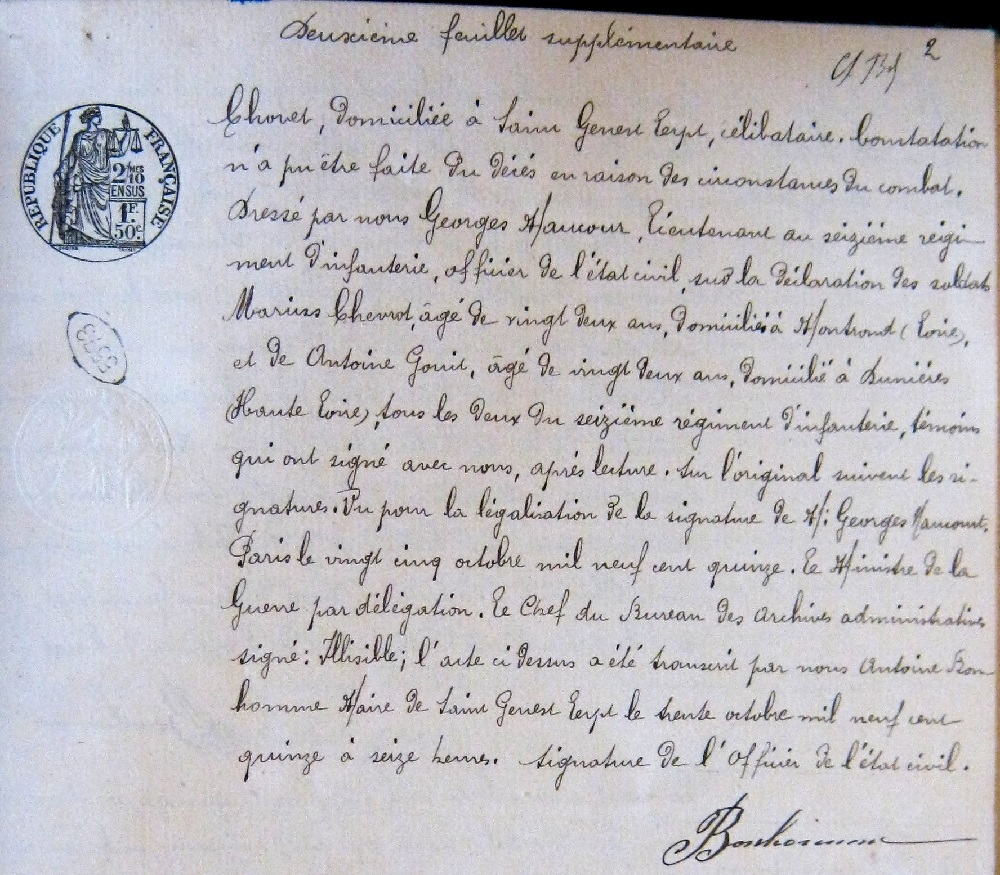 Deuxième feuillet supplémentaire
2
RÉPUBLIQUE FRANÇAISE
2/10 EN SUS
1F. 50c
3573
Chovet, domiciliée à Saint Genest Lerpt, célibataire. Constatation
n'a pu être faite du décés en raison des circonstances du combat.
Dressé par nous Georges Maucour, lieutenant au seizième régi-
ment d'infanterie, officier de l'état civil, sur la déclaration des soldats
Marius Chevrot, âgé de vingt deux ans, domicilié à Montrond (Loire),
et de Antoine Gouit, âgé de vingt deux ans, domicilié à Dunières
(Haute Loire), tous les deux du seizième régiment d'infanterie, témoins
qui ont signé avec nous, après lecture. Sur l'original suivent les si-
gnatures. Vu pour la légalisation de la signature de M: Georges Maucourt.
Paris le vingt cinq octobre mil neuf cent quinze. Le Ministre de la
Guerre par délégation. Le Chef du Bureau des Archives administratives
signé: Illisible; l'acte ci dessus a été transcrit par nous Antoine Bon-
homme Maire de Saint Genest Lerpt le trente octobre mil neuf cent
quinze à seize heures. Signature de l'Officier de l'état civil.
Bonhomme